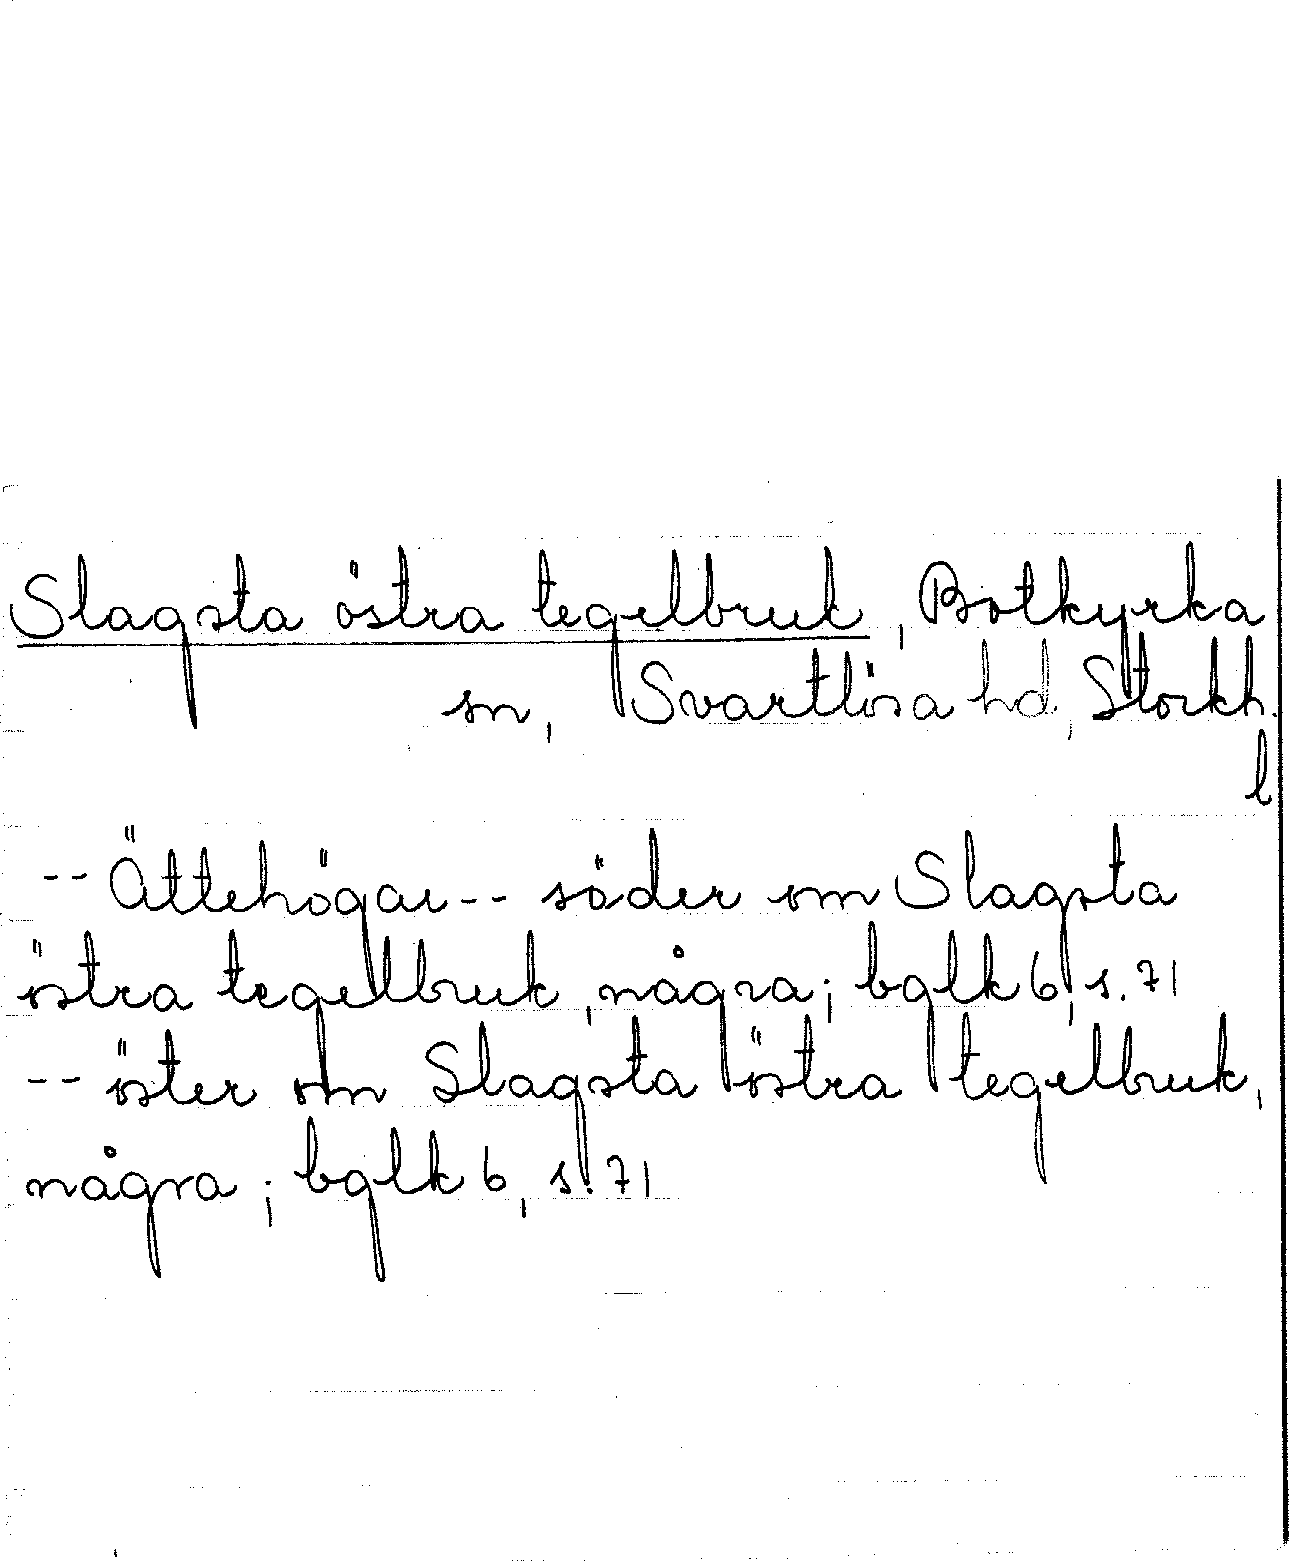 Slagsta östra tegelbruk, Botkyrka
sn, Svartlösa hd, Stockh.
l
-- Ättehögar -- söder om Slagsta
östra tegelbruk, några; bglk 6, s. 71
-- öster om Slagsta östra tegelbruk,
några; bglk 6, s. 71